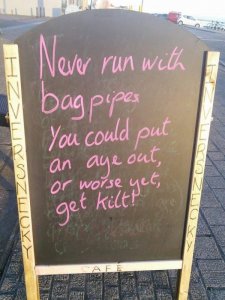 Never run with
bagpipes
You could put
an aye out,
or worse yet,
get kilt!
INVERSNECKY
INVERSNECKY
CAFÉ